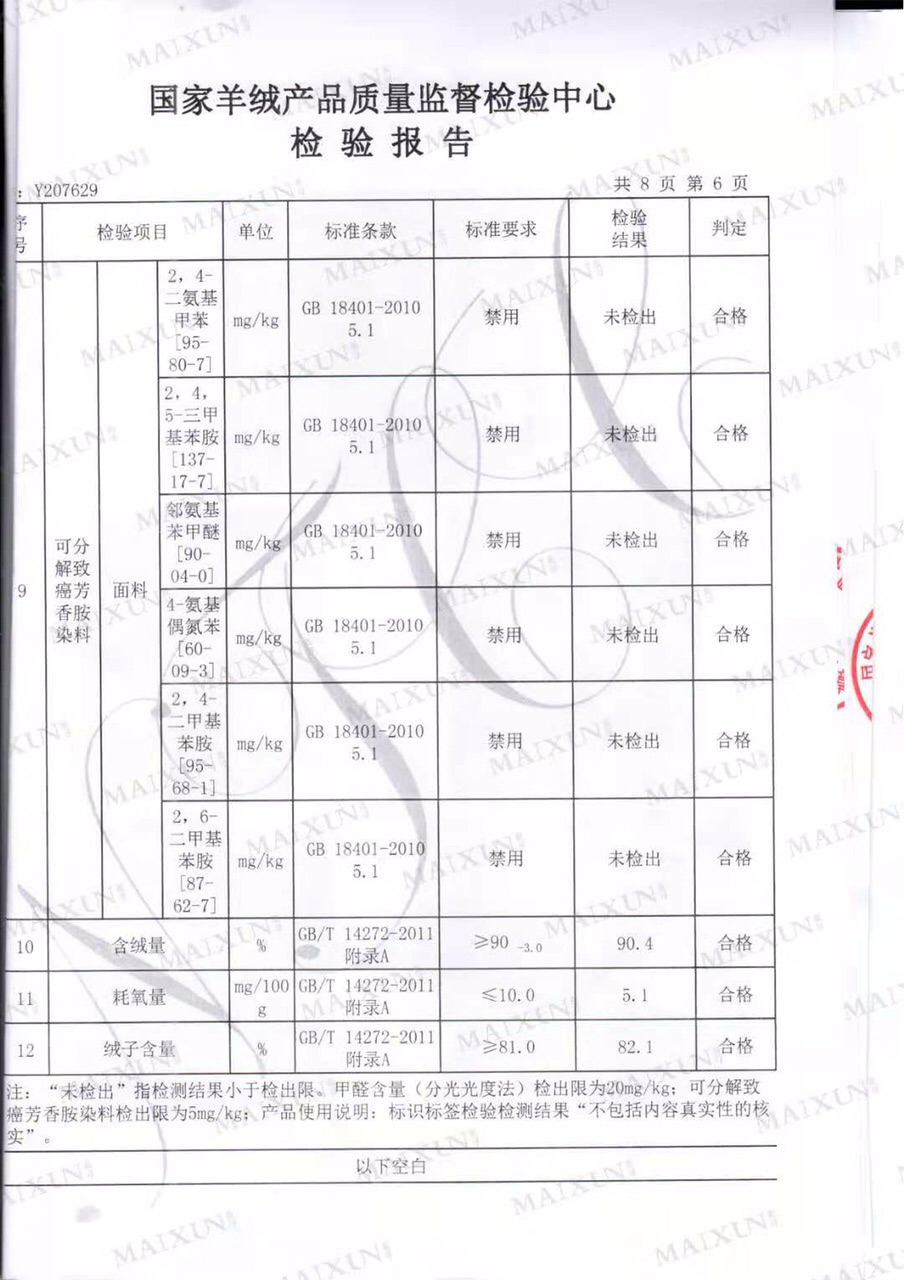 国家羊绒产品质量监督检验中心
检 验 报 告
：Y207629
共 8 页 第 6 页
序号 检验项目 单位 标准条款 标准要求 检验结果 判定
9 可分解致癌芳香胺染料 面料
2，4-二氨基甲苯[95-80-7] mg/kg GB 18401-2010 5.1 禁用 未检出 合格
2，4，5-三甲基苯胺[137-17-7] mg/kg GB 18401-2010 5.1 禁用 未检出 合格
邻氨基苯甲醚[90-04-0] mg/kg GB 18401-2010 5.1 禁用 未检出 合格
4-氨基偶氮苯[60-09-3] mg/kg GB 18401-2010 5.1 禁用 未检出 合格
2，4-二甲基苯胺[95-68-1] mg/kg GB 18401-2010 5.1 禁用 未检出 合格
2，6-二甲基苯胺[87-62-7] mg/kg GB 18401-2010 5.1 禁用 未检出 合格
10 含绒量 % GB/T 14272-2011 附录A ≥90 -3.0 90.4 合格
11 耗氧量 mg/100g GB/T 14272-2011 附录A ≤10.0 5.1 合格
12 绒子含量 % GB/T 14272-2011 附录A ≥81.0 82.1 合格
注：“未检出”指检测结果小于检出限。甲醛含量（分光光度法）检出限为20mg/kg；可分解致
癌芳香胺染料检出限为5mg/kg；产品使用说明：标识标签检验检测结果“不包括内容真实性的核
实”。
以下空白
MAIXUN